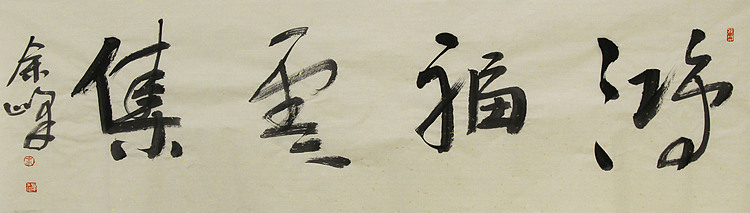 鸿福雲集
余峰